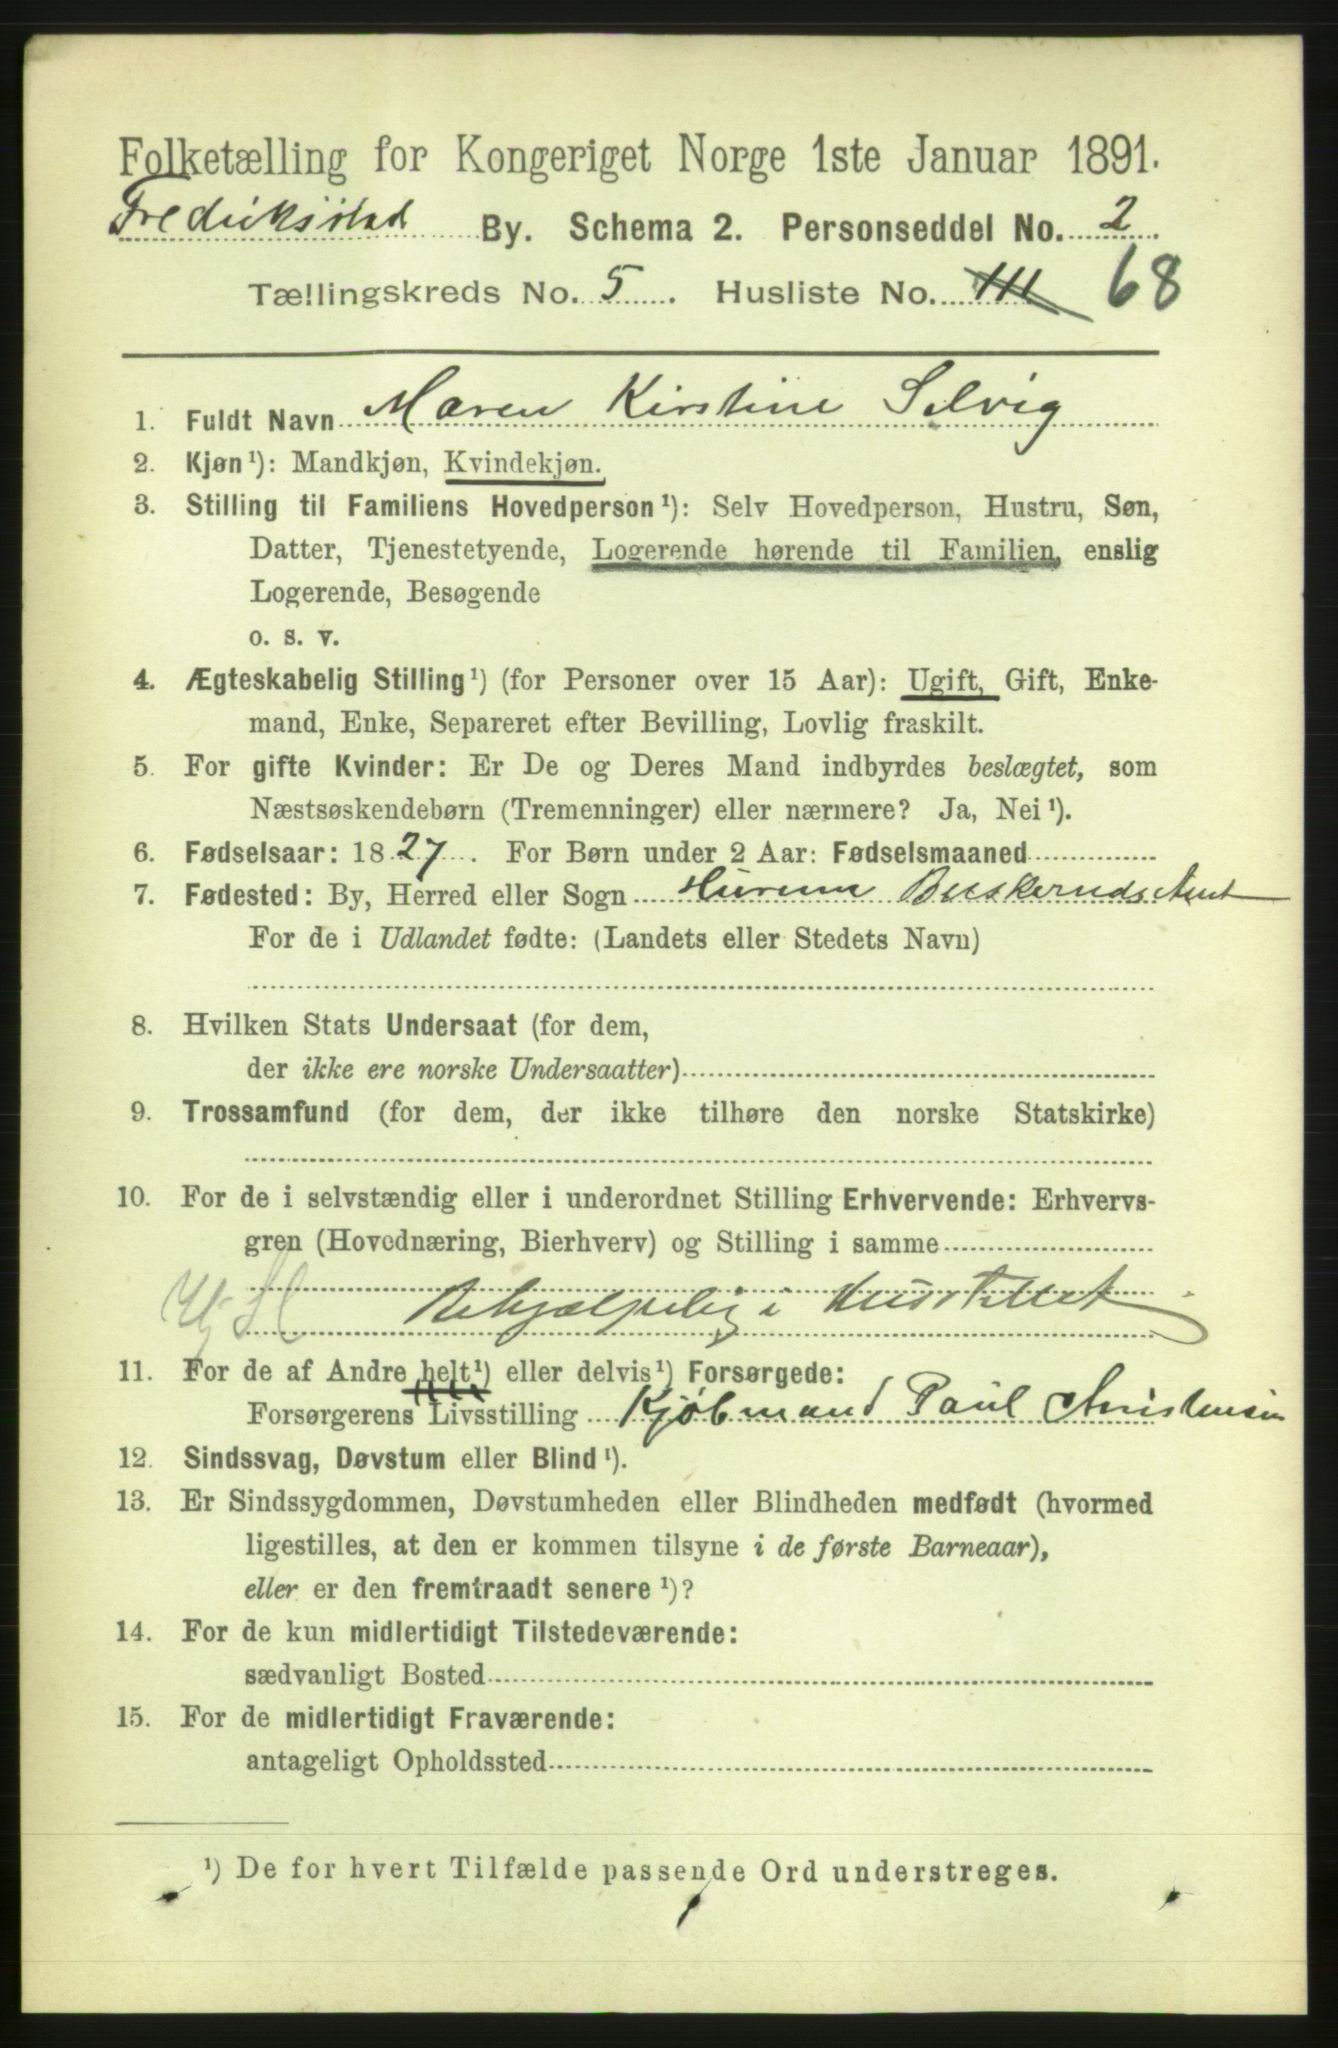 Folketælling for Kongeriget Norge 1ste Januar 1891.
Fredriksstad By. Schema 2. Personseddel No. 2
Tællingskreds No. 5. Husliste No. 111 68
1. Fuldt Navn Maren Kirstine Selvig
2. Kjøn¹): Mandkjøn, Kvindekjøn.
3. Stilling til Familiens Hovedperson¹): Selv Hovedperson, Hustru, Søn,
Datter, Tjenestetyende, Logerende hørende til Familien, enslig
Logerende, Besøgende
o. s. v.
4. Ægteskabelig Stilling¹) (for Personer over 15 Aar): Ugift, Gift, Enke-
mand, Enke, Separeret efter Bevilling, Lovlig fraskilt.
5. For gifte Kvinder: Er De og Deres Mand indbyrdes beslægtet, som
Næstsøskendebørn (Tremenninger) eller nærmere? Ja, Nei¹).
6. Fødselsaar: 1827. For Børn under 2 Aar: Fødselsmaaned
7. Fødested: By, Herred eller Sogn Hurum Buskeruds Amt
For de i Udlandet fødte: (Landets eller Stedets Navn)
8. Hvilken Stats Undersaat (for dem,
der ikke ere norske Undersaatter)
9. Trossamfund (for dem, der ikke tilhøre den norske Statskirke)
10. For de i selvstændig eller i underordnet Stilling Erhvervende: Erhvervs-
gren (Hovednæring, Bierhverv) og Stilling i samme
Behjælpelig i Husstellet
11. For de af Andre helt¹) eller delvis¹) Forsørgede:
Forsørgerens Livsstilling Kjøbmand Paul Christensen
12. Sindssvag, Døvstum eller Blind¹).
13. Er Sindssygdommen, Døvstumheden eller Blindheden medfødt (hvormed
ligestilles, at den er kommen tilsyne i de første Barneaar),
eller er den fremtraadt senere¹)?
14. For de kun midlertidigt Tilstedeværende:
sædvanligt Bosted
15. For de midlertidigt Fraværende:
antageligt Opholdssted
¹) De for hvert Tilfælde passende Ord understreges.